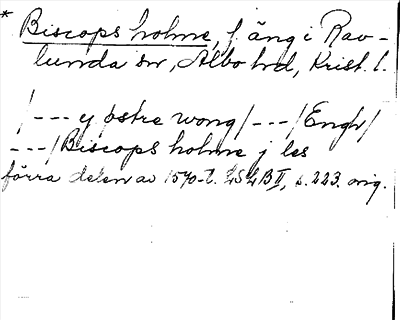 * Biscops holme, f. äng i Rav-
lunda sn, Albo hd, Krist. l.
/--- y östre wong/---/Engh/
---/Biscops holme j les
förra delen av 1570-t. LSLB II, s. 223. orig.